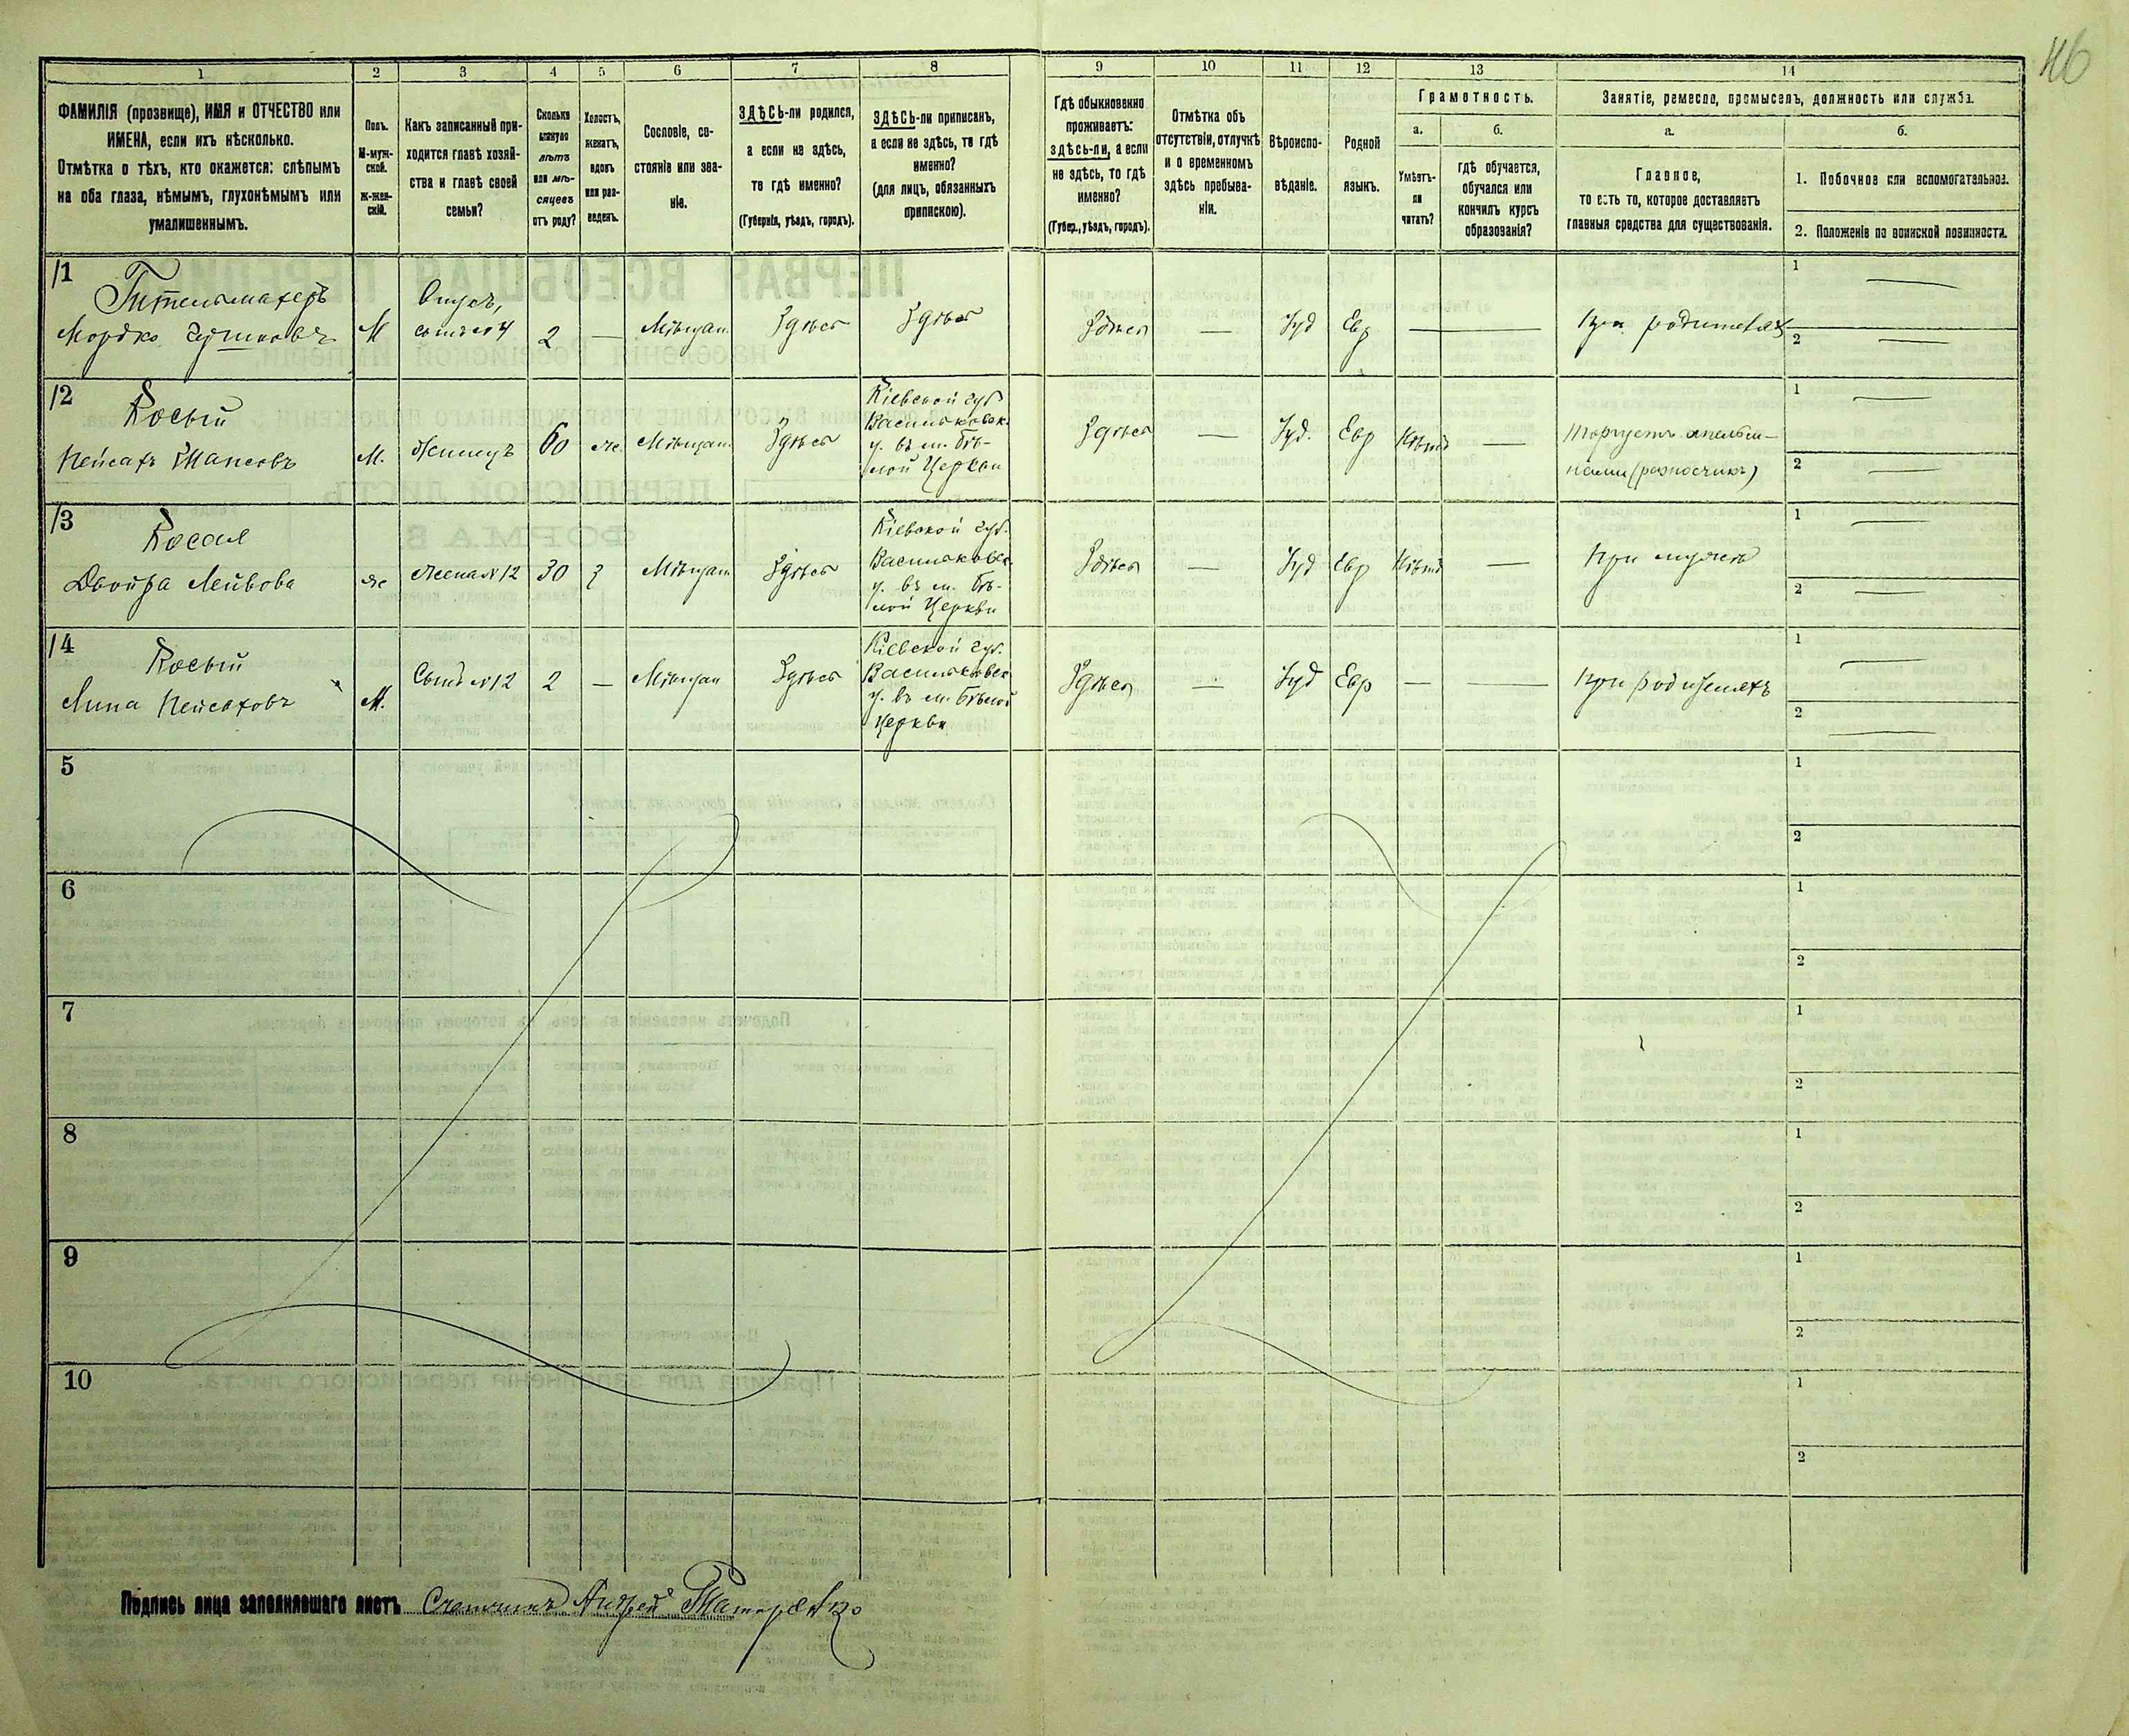 46
1
2
3
4
5
6
7
8
9
10
11
12
13
14
ФАМИЛІЯ (прозвище), ИМЯ и ОТЧЕСТВО или
ИМЕНА, если ихъ нѣсколько.
Отмѣтка о тѣхъ, кто окажется: слѣпымъ
на оба глаза, нѣмымъ, глухонѣмымъ или
умалишеннымъ.
Полъ.
М-муж-
ской.
Ж-жен-
скій.
Какъ записанный при-
ходится главѣ хозяй-
ства и главѣ своей
семьи?
Сколько
минуло
лѣтъ
или мѣ-
сяцевъ
отъ роду?
Холостъ,
женатъ,
вдовъ
или раз-
веденъ.
Сословіе, со-
стояніе или зва-
ніе.
ЗДѢСЬ-ли родился,
а если не здѣсь,
то гдѣ именно?
(Губернія, уѣздъ, городъ).
ЗДѢСЬ-ли приписанъ,
а если не здѣсь, то гдѣ
именно?
(для лицъ, обязанныхъ
припискою).
Гдѣ обыкновенно
проживаетъ:
здѣсь-ли, а если
не здѣсь, то гдѣ
именно?
(Губер., уѣздъ, городъ).
Отмѣтка объ
отсутствіи, отлучкѣ
и о временномъ
здѣсь пребыва-
ніи.
Вѣроиспо-
вѣданіе.
Родной
языкъ.
Грамотность.
а.
Умѣетъ-
ли
читать?
б.
гдѣ обучается,
обучался или
кончилъ курсъ
образованія?
Занятіе, ремесло, промыселъ, должность или служба.
а.
Главное,
то есть то, которое доставляетъ
главныя средства для существованія.
б.
1. Побочное или вспомогательное.
2. Положеніе по воинской повинности.
11
Гительмахеръ
Мордко
М
сынъ №4
2
—
Мѣщан.
Здѣсь
Здѣсь
Здѣсь
—
Іуд
Евр
—
При родителяхъ
1 —
2 —
12
Косый
Пейсахъ
М.
Жилецъ
60
же.
Мѣщан.
Здѣсь
Кіевской губ
Васильковск.
у. въ м. Бѣ-
лой Церкви
Здѣсь
—
Іуд.
Евр
Нѣтъ
—
Торгуетъ апельси-
нами (разносчикъ)
1 —
2 —
13
Косая
Двойра Лейбова
же
Жена №12
30
з
Мѣщан
Здѣсь
Кіевской губ.
Васильковск.
у. въ м. Бѣ-
лой Церкви
Здѣсь
—
Іуд
Евр
Нѣтъ
—
При мужѣ
1 —
2 —
14
Косый
Липа Пейсаховъ
М.
Сынъ №12
2
—
Мѣщан
Здѣсь
Кіевской губ.
Васильковск
у. въ м. Бѣлой
Церкви
Здѣсь
—
Іуд
Евр
—
—
При родителяхъ
1 —
2 —
5
1
2
6
1
2
7
1
2
8
1
2
9
1
2
10
1
2
Подпись лица заполнявшаго листъ Счетчикъ Андрей